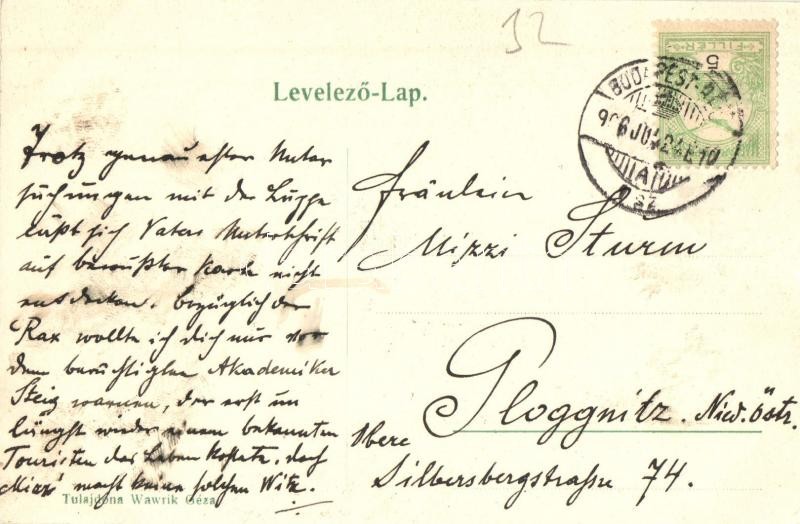 32
FILLÉR
5
BUDAPEST
906 JUL 24
Levelező-Lap.
Trotz genauester Unter
suchungen mit der Luppe
läßt sich Vaters Unterschrift
auf bewußter Karte nicht
entdecken. Bezüglich der
Rax wollte ich dich nur vor
dem berüchtigten Akademiker
Steig warnen, der erst un
längst wieder einem bekannten
Touristen das Leben kostete, doch
Mizzi macht keine solchen Witz.
Fräulein
Mizzi Sturm
Gloggnitz. Nied. Östr.
Obere
Silbersbergstrasse 74.
Tulajdona Wawrik Géza